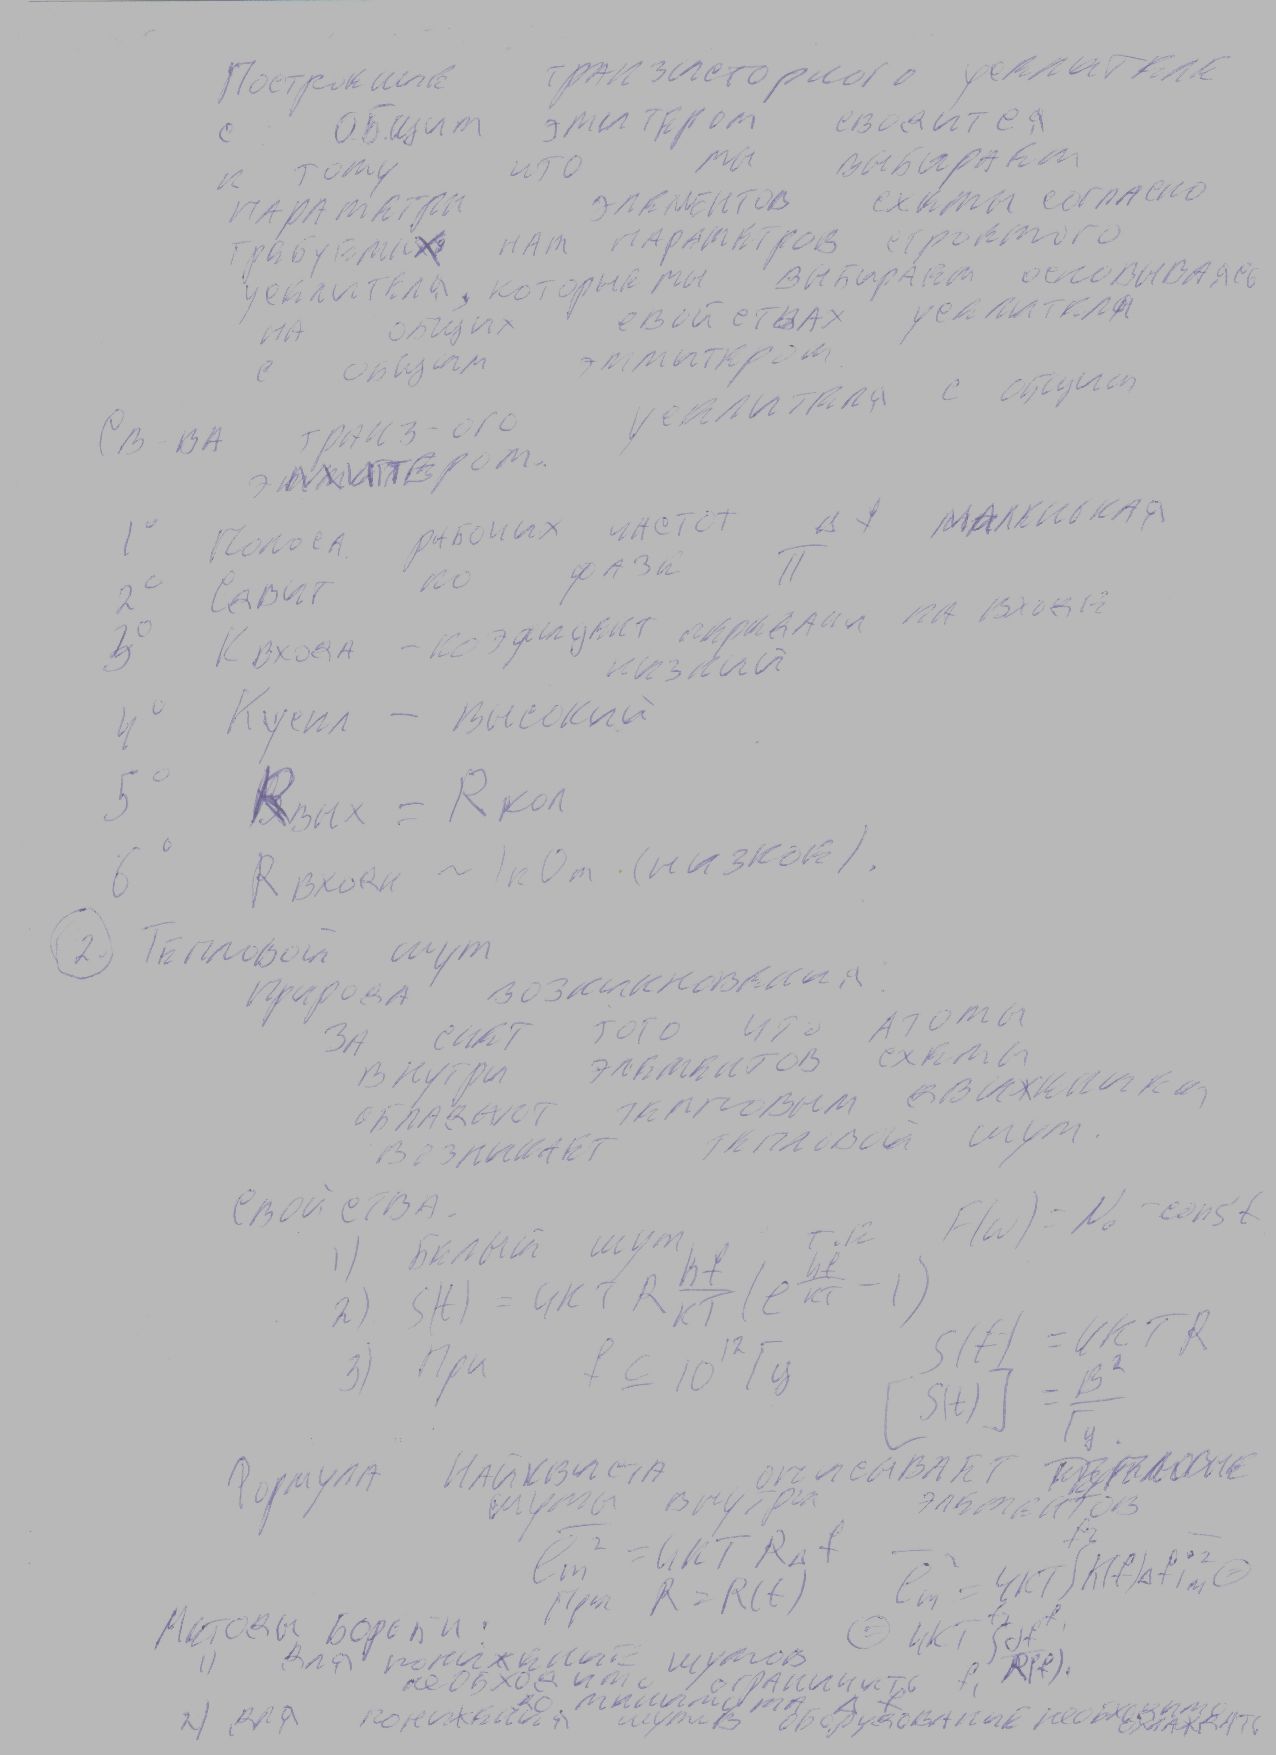 Построение транзисторного усилителя
с общим эмиттером сводится
к тому что мы выбираем
параметры элементов схемы согласно
требуемых нам параметров строемого
усилителя, которые мы выбираем основываясь
на общих свойствах усилителя
с общим эммитером
Св-ва транз-ого усилителя с общим
эммитером.
1° Полоса рабочих частот в f маленькая
2° Сдвиг по фазе π
3° K входа – коэфициент передачи на входе
низкий
4° Kусил – высокий
5° Rвых = Rкол
6° Rвходн ~ 1кОм (низкое).
2. Тепловой шум
природа возникновения.
За счет того что атомы
внутри элементов схемы
обладают тепловым движением
возникает тепловой шум.
Свойства.
1) Белый шум т.к F(ω) = N₀ -const
2) S(f) = 4KTR hf/KT (e^(hf/KT) - 1)
3) При f ≤ 10¹² Гц S(f) = 4KTR
[S(f)] = В²/Гц.
Формула Найквиста описывает тепловые
шумы внутри элементов
eш² = 4KTRΔf
При R = R(f)
= 4KT
Методы борьбы:
1) для понижение шумов
необходимо ограничить
до минимума Δf
2) для понижения шумов оборудование необходимо
охлаждать